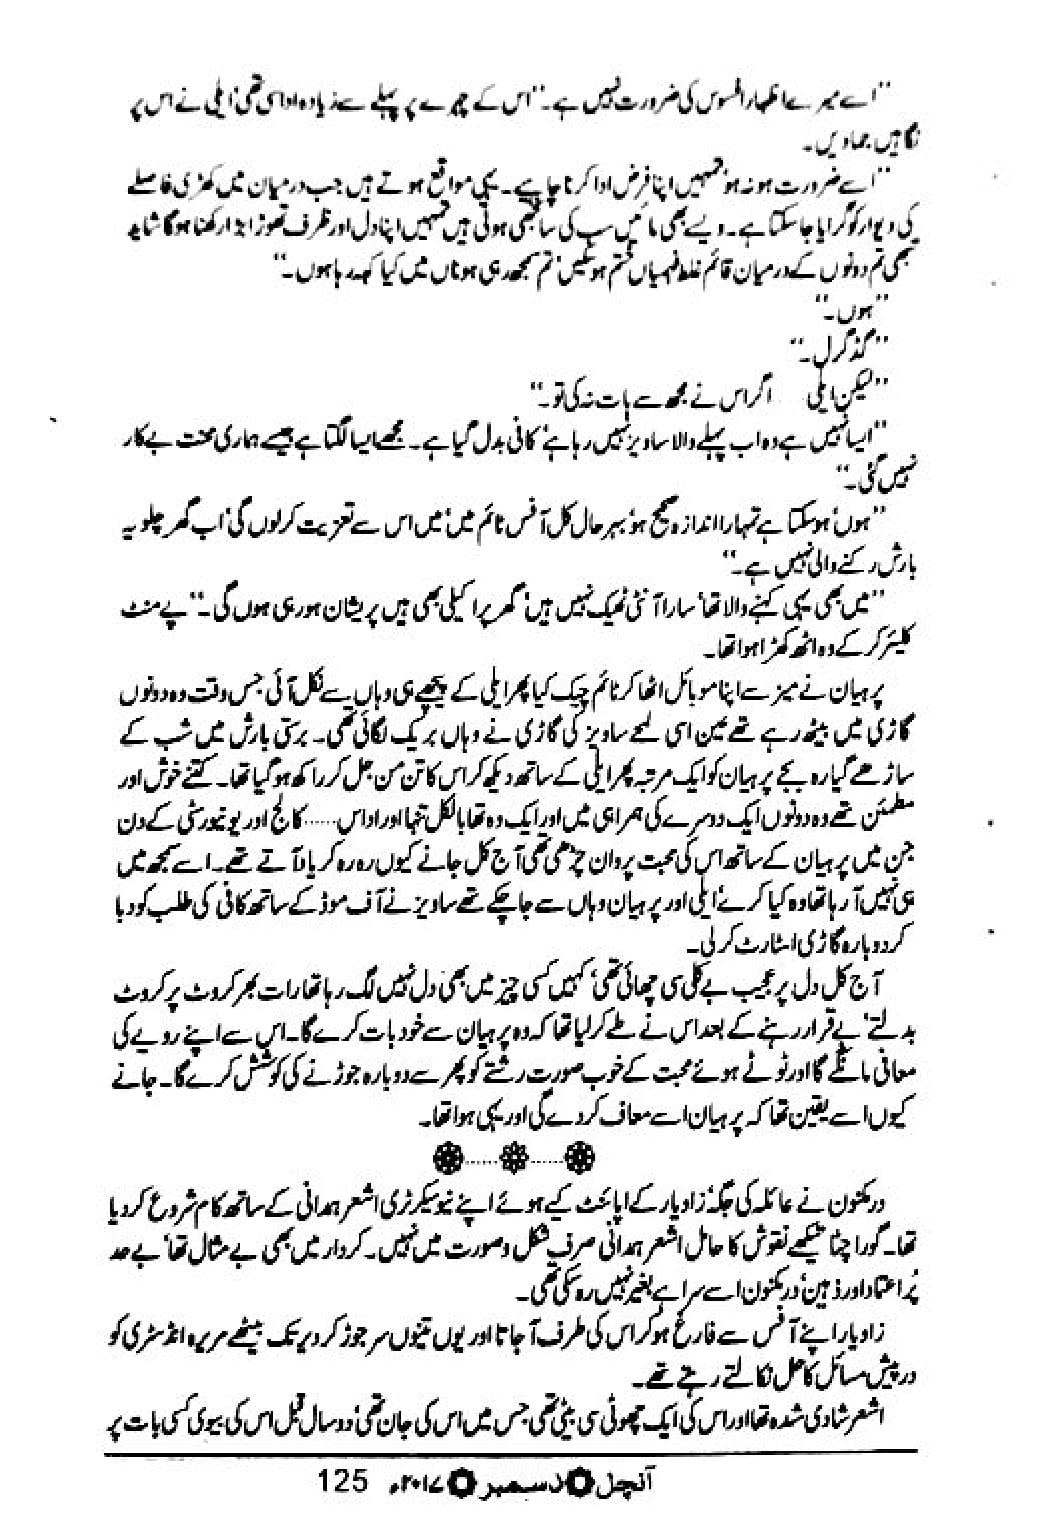 "اسے میرے اظہار افسوس کی ضرورت نہیں ہے۔" اس کے چہرے پر پہلے سے زیادہ اداسی تھی ایلی نے اس پر
نگاہیں جمادیں۔
"اسے ضرورت ہو نہ ہو تمہیں اپنا فرض ادا کرنا چاہیے۔ یہی مواقع ہوتے ہیں جب درمیان میں کھڑی فاصلے
کی دیوار کو گرایا جاسکتا ہے۔ ویسے بھی مائیں سب کی سانجھی ہوتی ہیں تمہیں اپنا دل اور ظرف تھوڑا بڑا رکھنا ہوگا شاید
تبھی تم دونوں کے درمیان قائم غلط فہمیاں ختم ہوسکیں تم سمجھ رہی ہو ناں میں کیا کہہ رہا ہوں۔"
"ہوں۔"
"گڈ گرل۔"
"لیکن ایلی اگر اس نے مجھ سے بات نہ کی تو۔"
"ایسا نہیں ہے وہ اب پہلے والا ساویز نہیں رہا ہے کافی بدل گیا ہے۔ مجھے ایسا لگتا ہے جیسے ہماری محنت بے کار
نہیں گئی۔"
"ہوں' ہوسکتا ہے تمہارا اندازہ صحیح ہو' بہرحال کل آفس ٹائم میں' میں اس سے تعزیت کرلوں گی' اب گھر چلو یہ
بارش رکنے والی نہیں ہے۔"
"میں بھی یہی کہنے والا تھا' سارا آنٹی ٹھیک نہیں ہیں' گھر پر اکیلی بھی ہیں پریشان ہورہی ہوں گی۔" پے منٹ
کلیئر کرکے وہ اٹھ کھڑا ہوا تھا۔
پرہیان نے میز سے اپنا موبائل اٹھا کر ٹائم چیک کیا پھر ایلی کے پیچھے ہی وہاں سے نکل آئی جس وقت وہ دونوں
گاڑی میں بیٹھ رہے تھے عین اسی لمحے ساویز کی گاڑی نے وہاں بریک لگائی تھی۔ برستی بارش میں شب کے
ساڑھے گیارہ بجے پرہیان کو ایک مرتبہ پھر ایلی کے ساتھ دیکھ کر اس کا تن من جل کر راکھ ہوگیا تھا۔ کتنے خوش اور
مطمئن تھے وہ دونوں ایک دوسرے کی ہمراہی میں اور ایک وہ تھا بالکل تنہا اور اداس...... کالج اور یونیورسٹی کے دن
جن میں پرہیان کے ساتھ اس کی محبت پروان چڑھی تھی آج کل جانے کیوں رہ رہ کر یاد آتے تھے۔ اسے سمجھ میں
ہی نہیں آرہا تھا وہ کیا کرے' ایلی اور پرہیان وہاں سے جاچکے تھے ساویز نے آف موڈ کے ساتھ کافی کی طلب کو دبا
کر دوبارہ گاڑی اسٹارٹ کرلی۔
آج کل دل پر عجیب بے کلی سی چھائی تھی' کہیں کسی چیز میں بھی دل نہیں لگ رہا تھا رات بھر کروٹ پر کروٹ
بدلتے' بے قرار رہنے کے بعد اس نے طے کرلیا تھا کہ وہ پرہیان سے خود بات کرے گا۔ اس سے اپنے رویے کی
معافی مانگے گا اور ٹوٹے ہوئے محبت کے خوب صورت رشتے کو پھر سے دوبارہ جوڑنے کی کوشش کرے گا۔ جانے
کیوں اسے یقین تھا کہ پرہیان اسے معاف کردے گی اور یہی ہوا تھا۔
درمکنون نے عائلہ کی جگہ' زاویار کے اپائنٹ کیے ہوئے اپنے نیو سیکرٹری اشعر ہمدانی کے ساتھ کام شروع کردیا
تھا۔ گورا چٹا تیکھے نقوش کا حامل اشعر ہمدانی صرف شکل وصورت میں نہیں۔ کردار میں بھی بے مثال تھا' بے حد
پُراعتماد اور ذہین' درمکنون اسے سراہے بغیر نہیں رہ سکی تھی۔
زاویار اپنے آفس سے فارغ ہوکر اس کی طرف آجاتا اور یوں تینوں سر جوڑ کر دیر تک بیٹھے مریرہ انڈسٹری کو
درپیش مسائل کا حل نکالتے رہتے تھے۔
اشعر شادی شدہ تھا اور اس کی ایک چھوٹی سی بیٹی تھی جس میں اس کی جان تھی' دو سال قبل اس کی بیوی کسی بات پر
آنچل دسمبر ۲۰۱۷ء 125